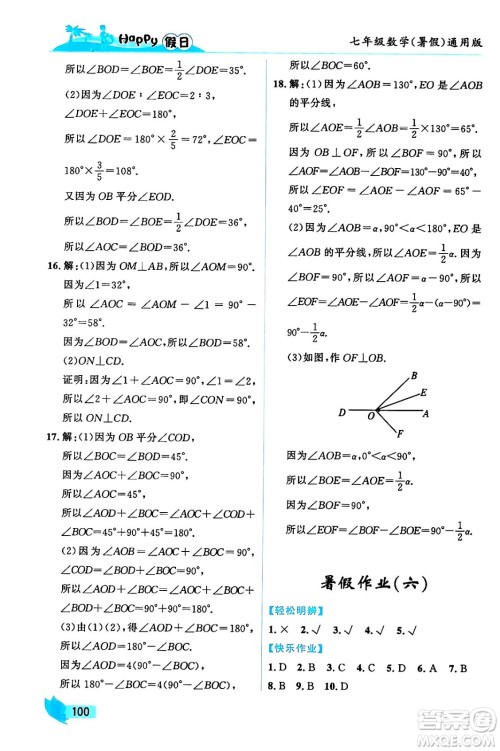 Happy 假日
七年级数学(暑假)通用版
所以∠BOD=∠BOE=1/2∠DOE=35°.
(2)因为∠DOE∶∠BOC=2∶3,
∠DOE+∠BOC=180°,
所以∠DOE=180°×2/5=72°,∠BOC
=180°×3/5=108°.
又因为OB平分∠EOD.
所以∠BOD=∠BOE=1/2∠DOE=36°.
所以∠AOC=∠BOD=36°.
16.解:(1)因为OM⊥AB,所以∠AOM=90°.
因为∠1=32°,
所以∠AOC=∠AOM-∠1=90°-
32°=58°.
所以∠BOD=∠AOC=58°.
(2)ON⊥CD.
证明:因为∠1+∠AOC=90°,∠1=∠2,
所以∠2+∠AOC=90°,即∠CON=90°.
所以ON⊥CD.
17.解:(1)因为OB平分∠COD,
所以∠BOC=∠BOD=45°.
因为∠AOC+∠BOC=90°,
所以∠AOC=45°.
所以∠AOD+∠BOC=∠AOC+∠COD+
∠BOC=45°+90°+45°=180°.
(2)因为∠AOB=∠AOC+∠BOC=90°,
∠COD=∠BOD+∠BOC=90°,
所以∠AOD+∠BOC=∠AOC+∠BOC
+∠BOD+∠BOC.
所以∠AOD+∠BOC=∠AOB+
∠COD=90°+90°=180°.
(3)由(1)(2)得,∠AOD+∠BOC=180°.
因为∠AOD=2∠BOC,
所以2∠BOC+∠BOC=180°.
所以∠BOC=60°.
18.解:(1)因为∠AOB=60°,OE是∠AOB
的平分线,
所以∠AOE=1/2∠AOB=1/2×60°=30°.
因为OB⊥OF,所以∠BOF=90°.
所以∠AOF=∠BOF-∠AOB=90°-
60°=30°.
(2)因为∠AOB=α,90°<α<180°,OE是
∠AOB的平分线,所以∠AOE=1/2α.
所以∠EOF=90°-∠BOE=90°-1/2α.
(3)如图,作OF⊥OB.
B
E
D
O
A
F
因为∠AOB=α,0°<α<90°,
所以∠AOE=∠BOE=1/2α.
因为∠BOF=90°,
所以∠EOF=∠BOF-∠BOE=90°-1/2α.
暑假作业(六)
【轻松明辨】
1.× 2.√ 3.√ 4.√ 5.√
【快乐作业】
1.D 2.D 3.B 4.C 5.D 6.A
7.C 8.B 9.C 10.D
100